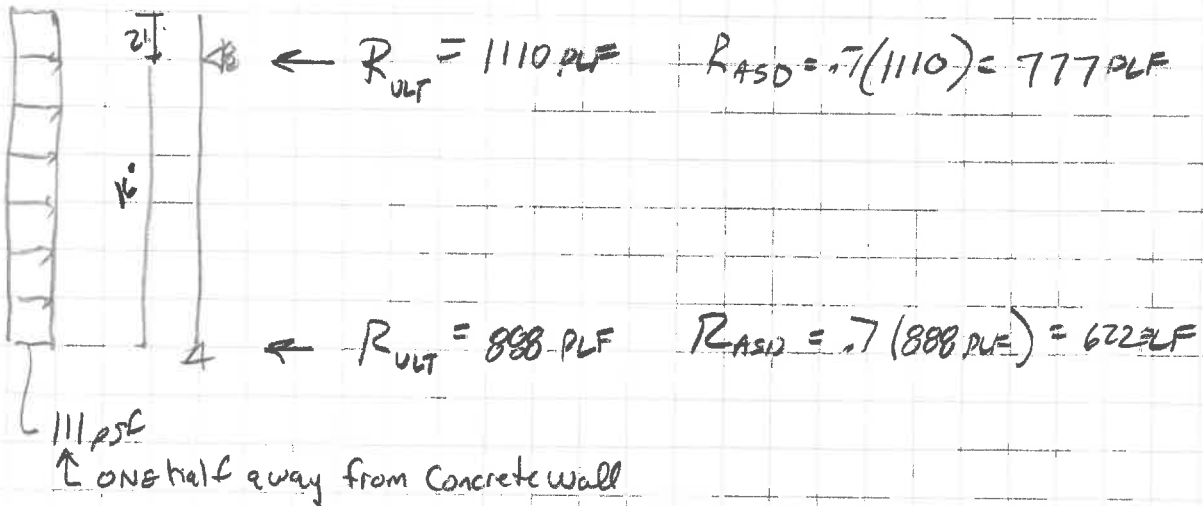 2'
R_ULT = 1110 PLF R_ASD = .7(1110) = 777 PLF
16'
R_ULT = 888 PLF R_ASD = .7 (888 PLF) = 622 PLF
111 psf
↑ ONE half away from Concrete wall